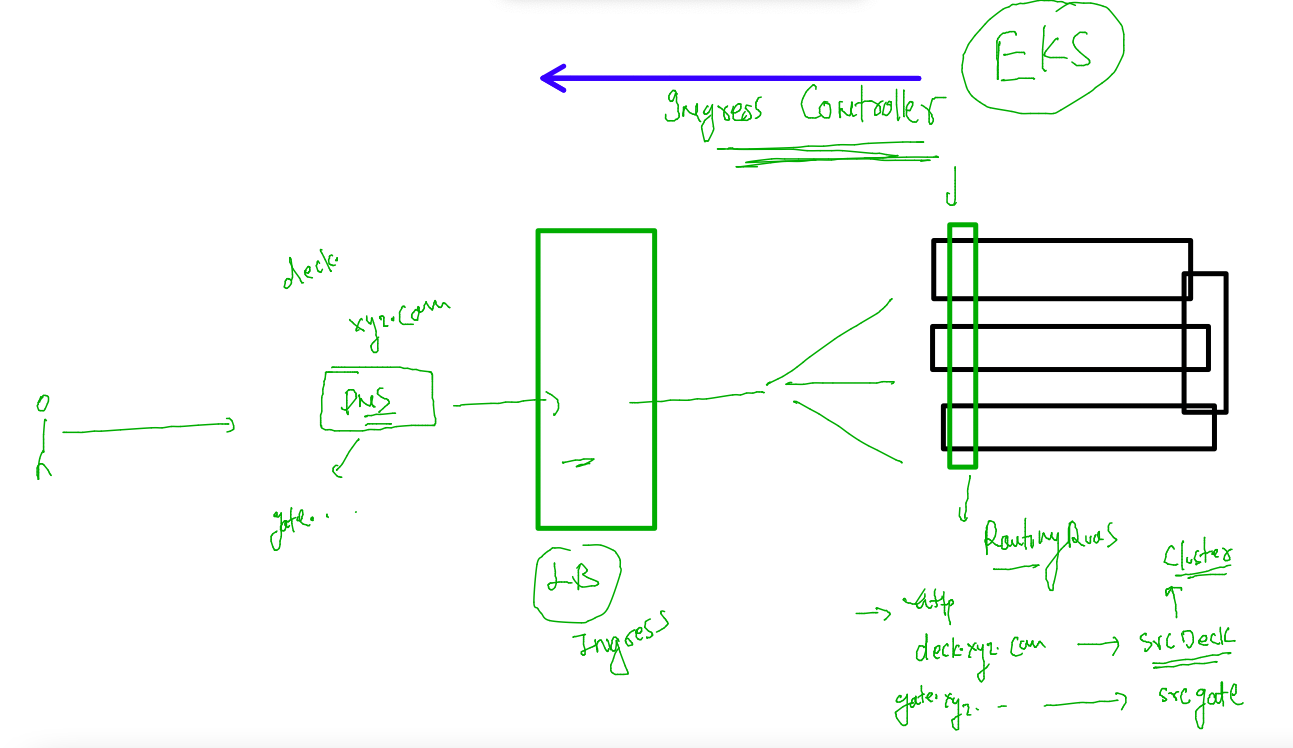 EKS
Ingress Controller
deck.
xyz.com
DNS
gate. . .
LB
Ingress
Routing Rules
Cluster
→ http
deck.xyz.com → svc Deck
gate.xyz. - → svc gate